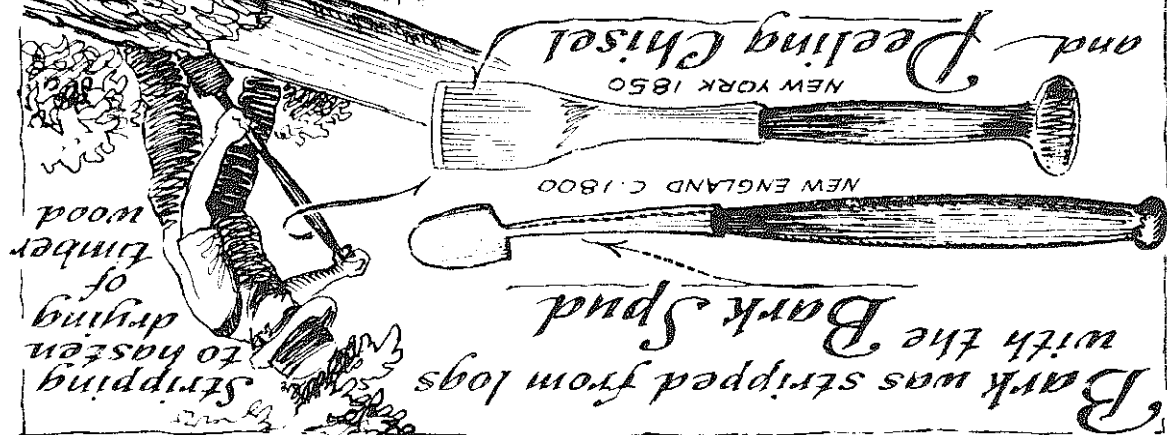 Bark was stripped from logs
with the Bark Spud
NEW ENGLAND C. 1800
NEW YORK 1850
and Peeling Chisel
Stripping
to hasten
drying
of
timber
wood